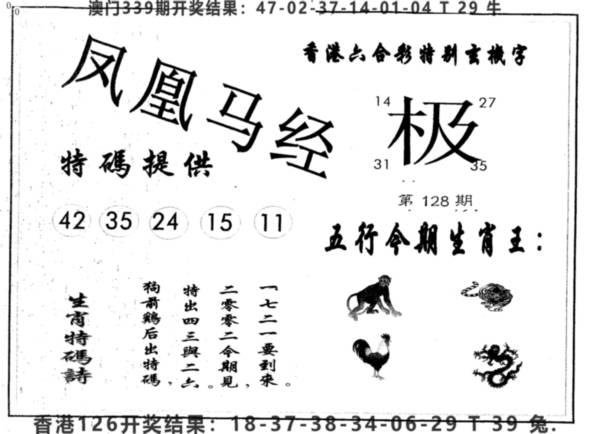 澳门339期开奖结果：47-02-37-14-01-04 T 29 牛
凤凰马经
香港六合彩特别玄機字
14
27
极
31
35
特碼提供
第 128 期
42 35 24 15 11
五行今期生肖王：
一七二一要到來。
二零零二今期見，
特出四三與二六。
狗前鷄后出特碼，
生肖特碼詩
香港126开奖结果：18-37-38-34-06-29 T 39 兔.